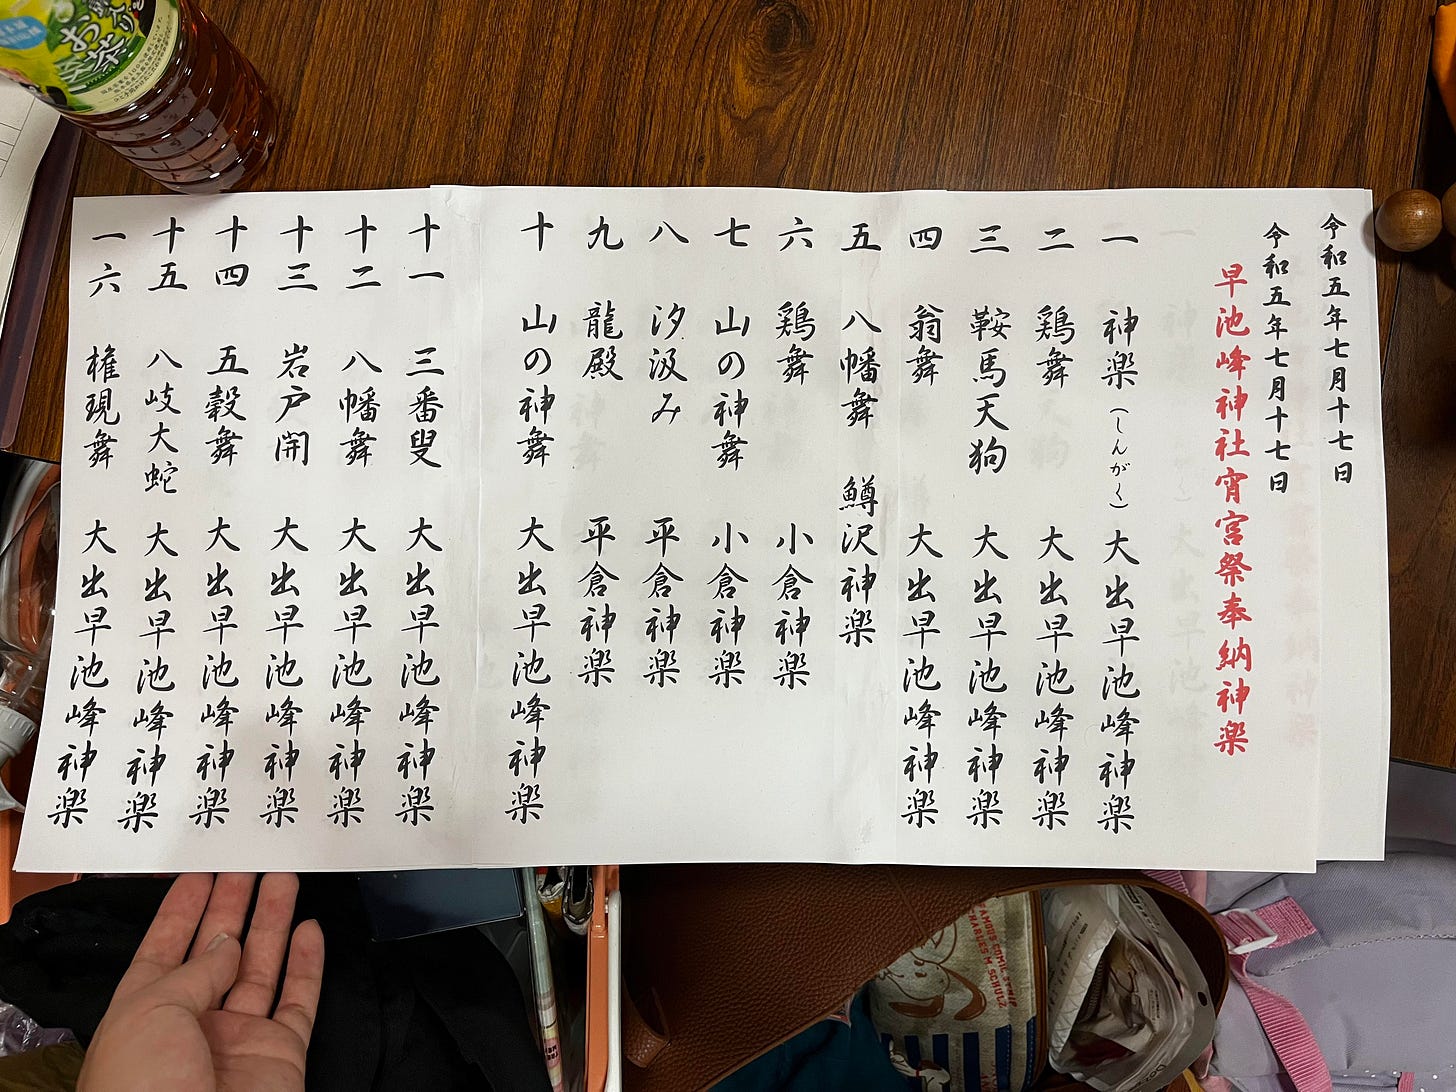 令和五年七月十七日
令和五年七月十七日
早池峰神社宵宮祭奉納神楽
一 神楽（しんがく） 大出早池峰神楽
二 鶏舞 大出早池峰神楽
三 鞍馬天狗 大出早池峰神楽
四 翁舞 大出早池峰神楽
五 八幡舞 鱒沢神楽
六 鶏舞 小倉神楽
七 山の神舞 小倉神楽
八 汐汲み 平倉神楽
九 龍殿 平倉神楽
十 山の神舞 大出早池峰神楽
十一 三番叟 大出早池峰神楽
十二 八幡舞 大出早池峰神楽
十三 岩戸開 大出早池峰神楽
十四 五穀舞 大出早池峰神楽
十五 八岐大蛇 大出早池峰神楽
一六 権現舞 大出早池峰神楽
お茶
FAMOUS COMIC STRIP
CHARLES M SCHULZ